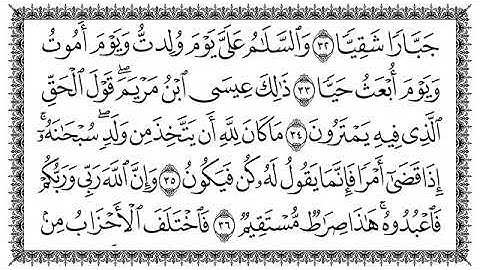 جَبَّارًا شَقِيًّا ٣٢ وَالسَّلَامُ عَلَيَّ يَوْمَ وُلِدتُّ وَيَوْمَ أَمُوتُ
وَيَوْمَ أُبْعَثُ حَيًّا ٣٣ ذَٰلِكَ عِيسَى ابْنُ مَرْيَمَ ۖ قَوْلَ الْحَقِّ
الَّذِي فِيهِ يَمْتَرُونَ ٣٤ مَا كَانَ لِلَّهِ أَن يَتَّخِذَ مِن وَلَدٍ ۖ سُبْحَانَهُ ۚ
إِذَا قَضَىٰ أَمْرًا فَإِنَّمَا يَقُولُ لَهُ كُن فَيَكُونُ ٣٥ وَإِنَّ اللَّهَ رَبِّي وَرَبُّكُمْ
فَاعْبُدُوهُ ۚ هَٰذَا صِرَاطٌ مُّسْتَقِيمٌ ٣٦ فَاخْتَلَفَ الْأَحْزَابُ مِن